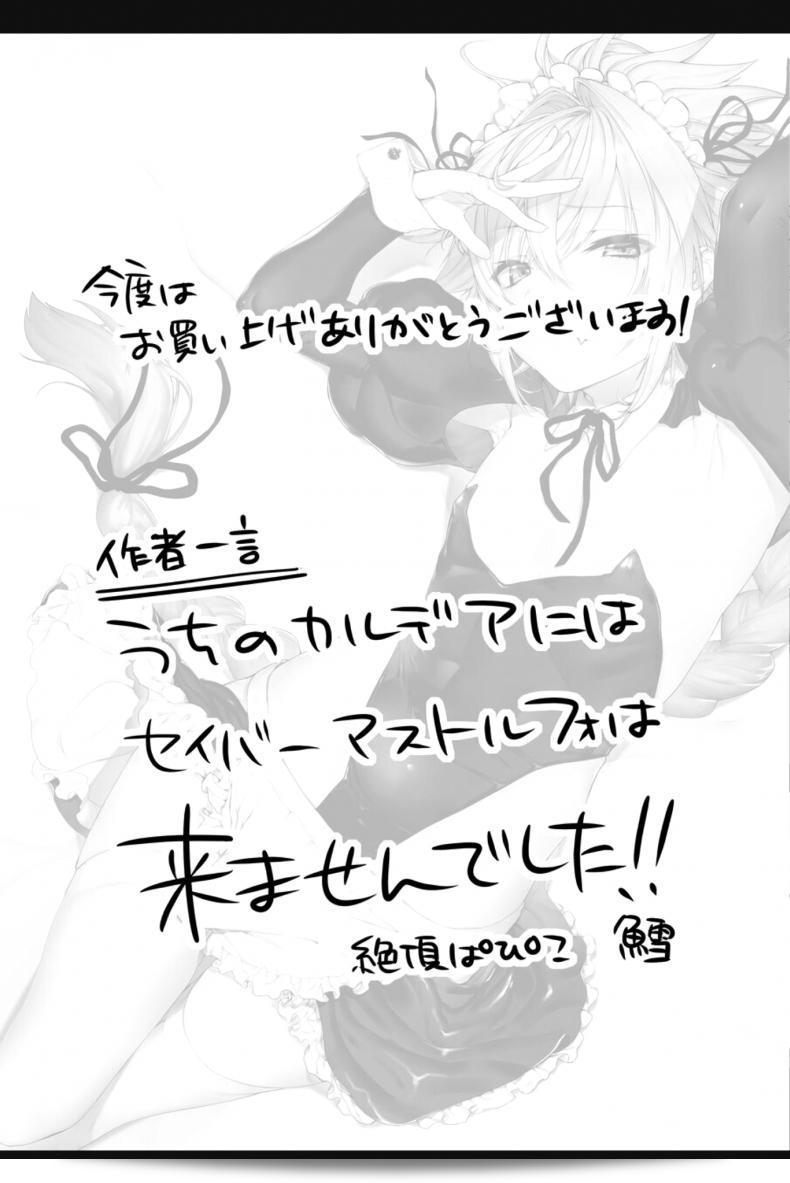 今度は
お買い上げありがとうございます!
作者一言
うちのカルデアには
セイバーアストルフォは
来ませんでした!!
絶頂ぱぴこ 鱈